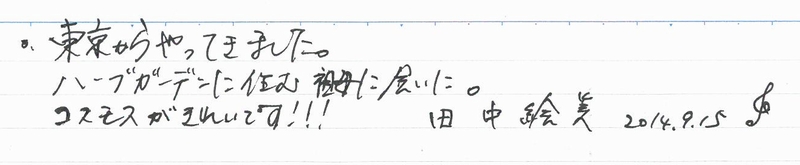 。東京からやってきました。
ハーブガーデンに住む祖母に会いに。
コスモスがきれいです!!! 田中絵美 2014.9.15